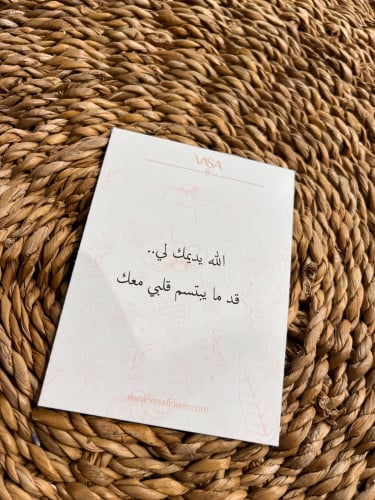 VASA
الله يديمك لي..
قد ما يبتسم قلبي معك
www.vasaflower.com